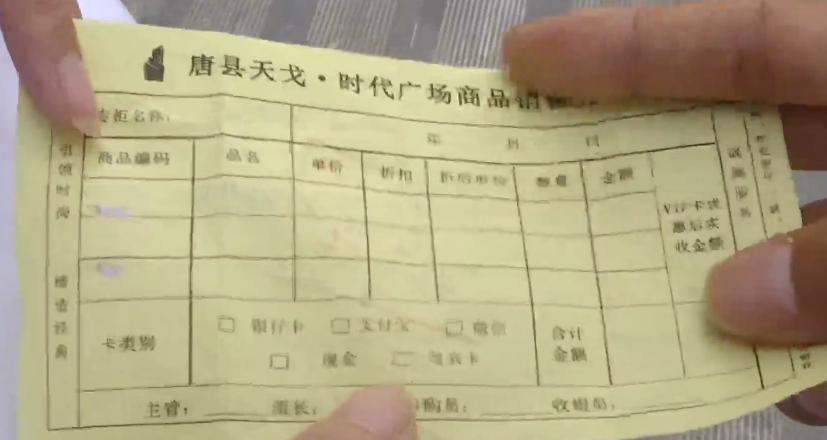 唐县天戈·时代广场商品销
专柜名称：
年 月 日
商品编码 品名 单价 折扣 折后单价 数量 金额
VIP卡优惠后实收金额
引领时尚 缔造经典
卡类别
银行卡 支付宝 微信
现金
合计金额
主管： 收银员：